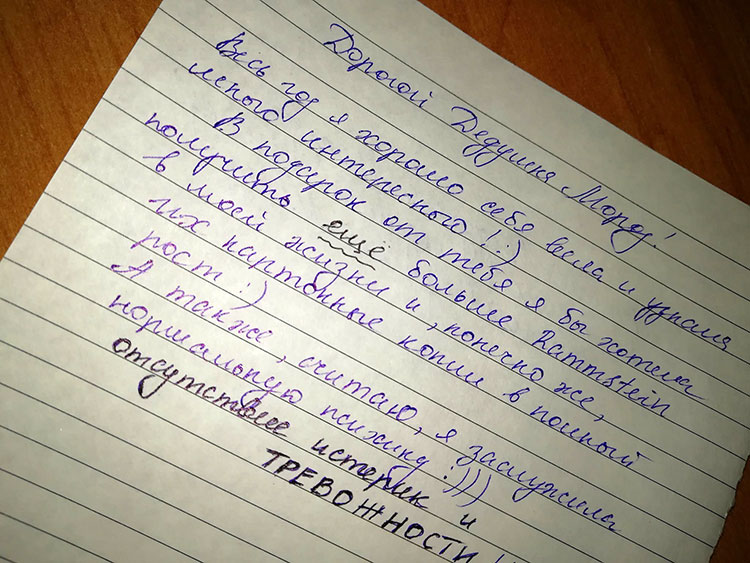 Дорогой Дедушка Мороз!
Весь год я хорошо себя вела и узнала
много интересного! :)
В подарок от тебя я бы хотела
получить ещё больше Rammstein
в моей жизни и, конечно же,
их картонные копии в полный
рост :)
А также, считаю, я заслужила
нормальную психику :)))
отсутствие истерик и
ТРЕВОЖНОСТИ!!